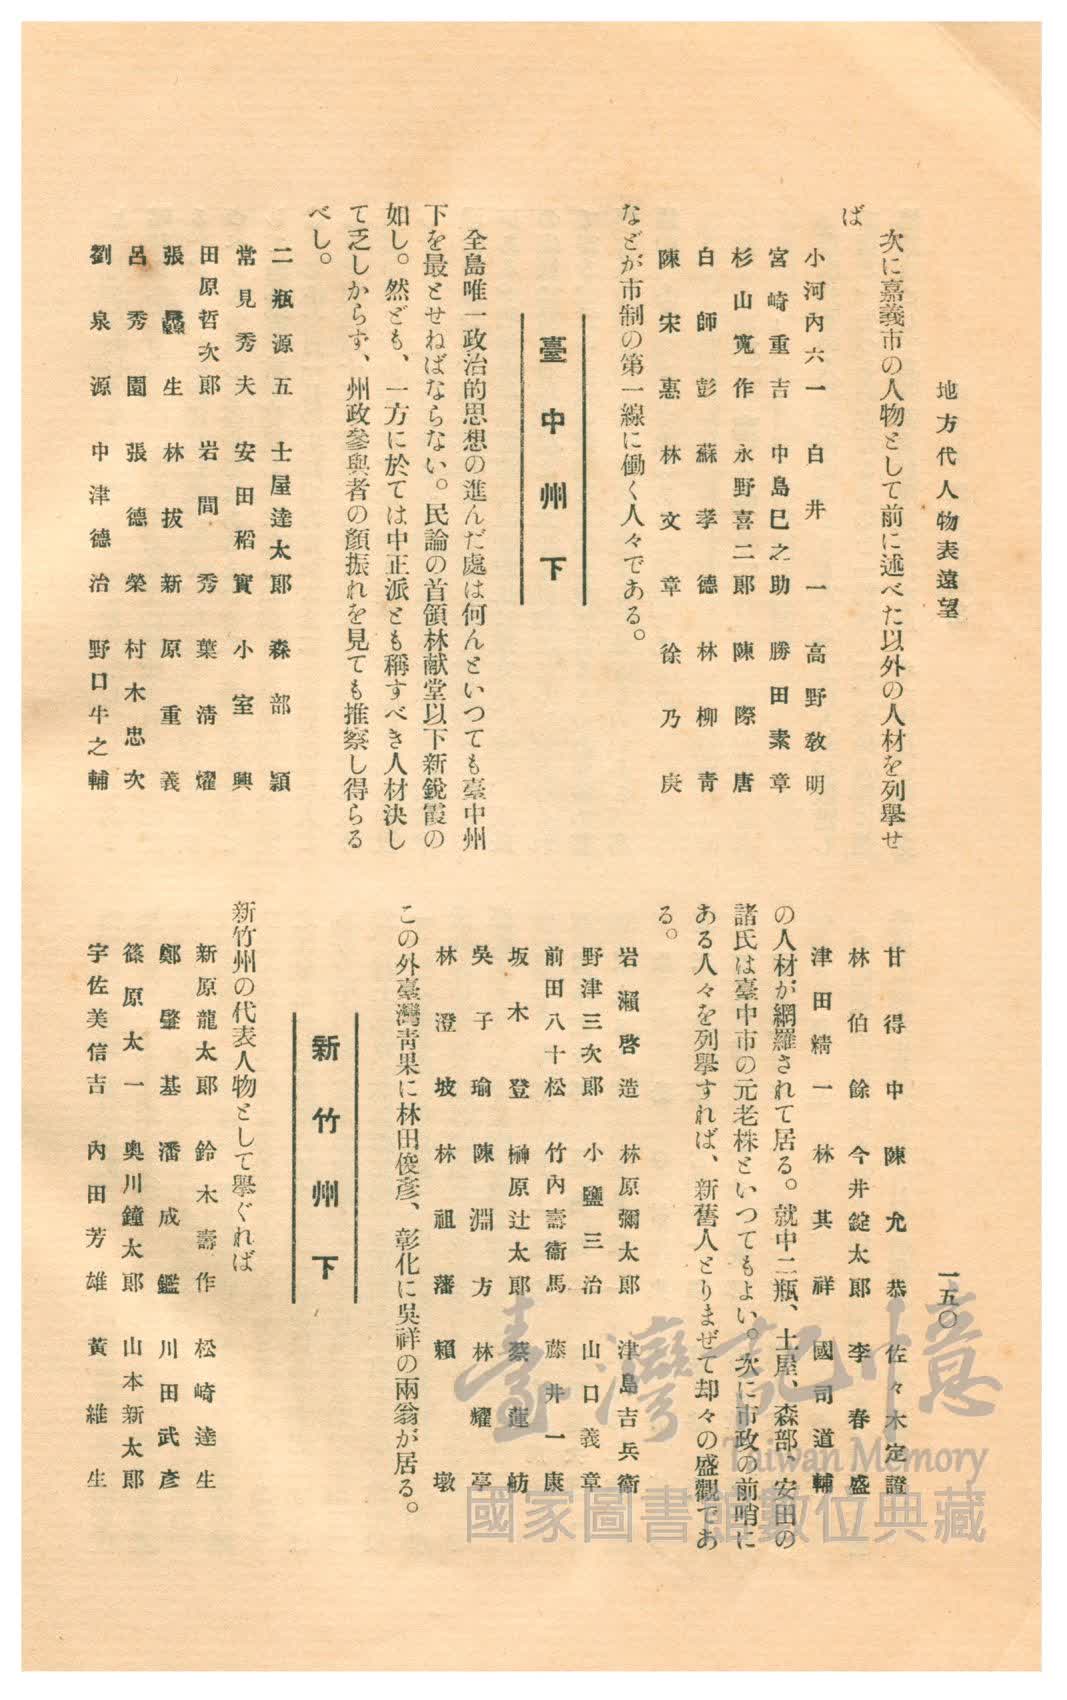 地方代人物表遠望
一五〇
次に嘉義市の人物として前に述べた以外の人材を列擧せ
ば
小河內六一　白井一　高野敎明
宮崎重吉　中島巳之助　勝田素章
杉山寬作　永野喜二郞　陳際唐
白師彭　蘇孝德　林柳靑
陳宋惠　林文章　徐乃庚
などが市制の第一線に働く人々である。
臺中州下
全島唯一政治的思想の進んだ處は何んといつても臺中州
下を最とせねばならない。民論の首領林献堂以下新銳霞の
如し。然ども、一方に於ては中正派とも稱すべき人材決し
て乏しからず、州政參與者の顏振れを見ても推察し得らる
べし。
二瓶源五　士屋達太郞　森部頴
常見秀夫　安田稻實　小室興
田原哲次郞　岩間秀　葉淸耀
張生　林拔新　原重義
呂秀園　張德榮　村木忠次
劉泉源　中津德治　野口牛之輔
甘得中　陳允恭　佐々木定證
林伯餘　今井錠太郞　李春盛
津田精一　林其祥　國司道輔
の人材が網羅されて居る。就中二瓶、土屋、森部、安田の
諸氏は臺中市の元老株といつてもよい。次に市政の前哨に
ある人々を列擧すれば、新舊人とりまぜて却々の盛觀であ
る。
岩瀨啓造　林原彌太郞　津島吉兵衞
野津三次郞　小鹽三治　山口義章
前田八十松　竹內壽衞馬　藤井一康
坂木登　榊原辻太郞　蔡蓮舫
吳子瑜　陳淵方　林耀亭
林澄坡　林祖藩　賴墩
この外臺灣靑果に林田俊彥、彰化に吳祥の兩翁が居る。
新竹州下
新竹州の代表人物として擧ぐれば
新原龍太郞　鈴木壽作　松崎達生
鄭肇基　潘成鑑　川田武彥
篠原太一　奧川鐘太郞　山本新太郞
宇佐美信吉　內田芳雄　黃維生
臺灣記憶
Taiwan Memory
國家圖書館數位典藏